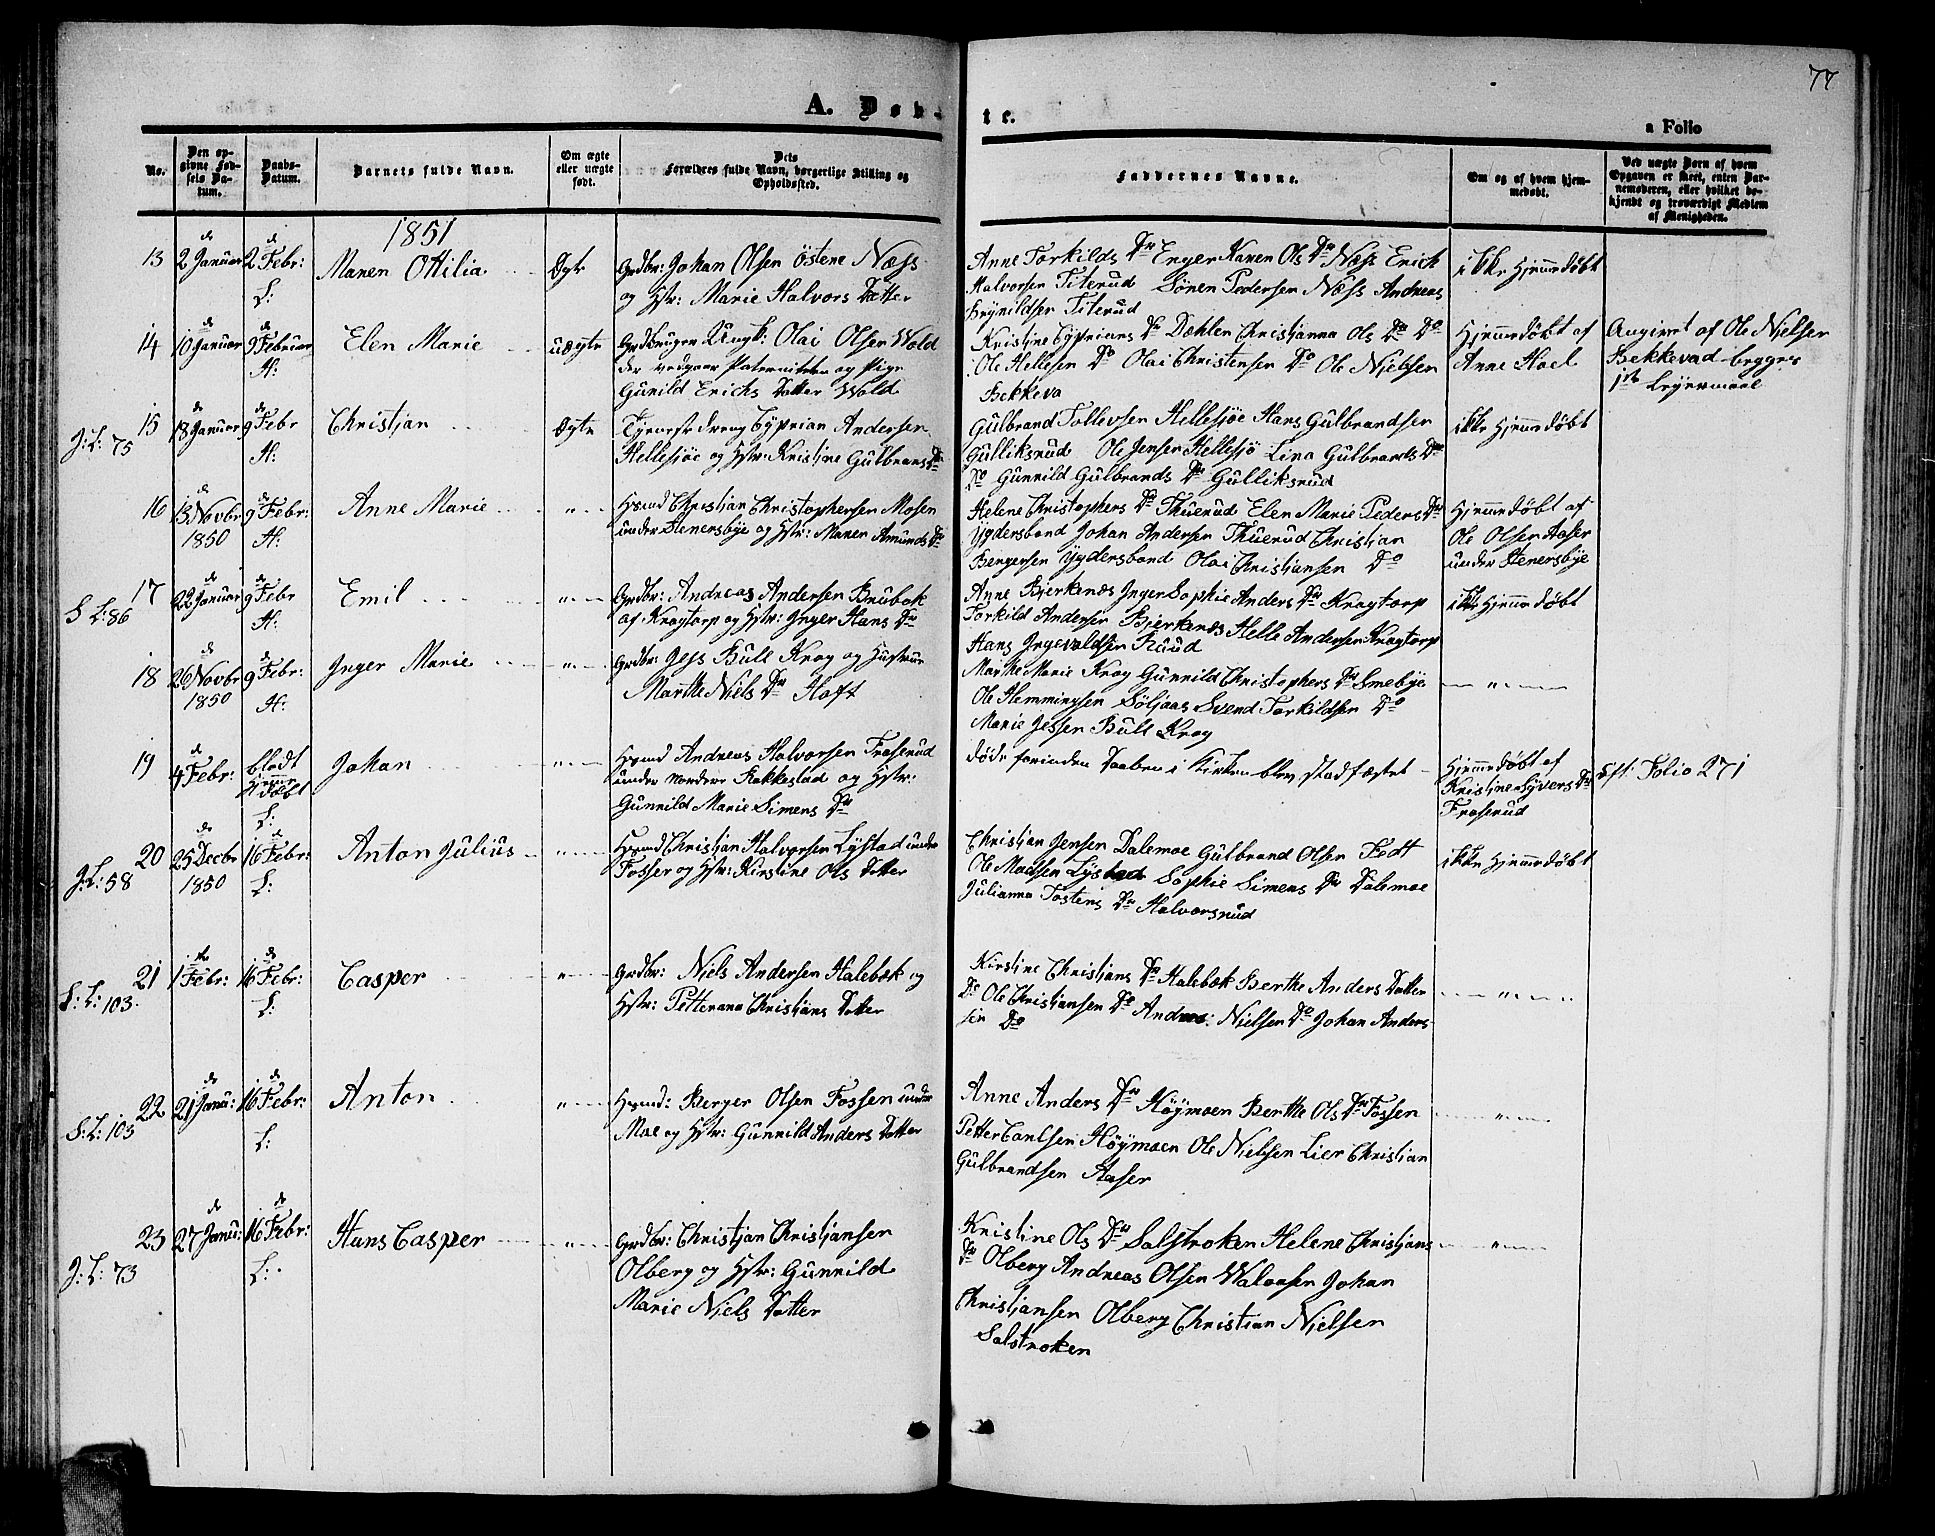 77
A. Døbte.
a Folio
No.
Den opgivne Fødsels Datum.
Daabs-Datum.
Barnets fulde Navn.
Om ægte eller uægte født.
Dets Forældres fulde Navn, borgerlige Stilling og Opholdssted.
Faddernes Navne.
Om og af hvem hjemmedøbt.
Ved uægte Børn af hvem Opgaven er skeet, enten Barnemoderen, eller hvilket bekjendt og troværdigt Medlem af Menigheden.
1851
13 2 Januar 2 Febr: L: Maren Ottilia Ægte
Grdbr: Johan Olsen Østene Næss
og Hstr: Marie Halvors Datter
Anne Torkilds Dtr Enger Karen Ols Dtr Næss Erich
Halvorsen Titerud Sören Pedersen Næss Andreas
Brynildsen Titerud
ikke Hjemmedøbt
14 10 Januar 9 Februar H: Elen Marie uægte
Grdbruger Ungk: Olai Olsen Wold
der vedgaar Paterniteten og Pige
Gunild Erichs Datter Wold
Kristine Cyprians Dtr Dæhlen Christianna Ols Dtr Do
Ole Hellesen Do Olai Christensen Do Ole Nielsen
Bekkeva
Hjemmedøbt af
Anne Hoel
Angivet af Ole Nielsen
Bekkevad begges
1ste Leyermaal
J: L: 75
15 18 Januar 9 Febr H: Christjan Ægte
Tjenestedreng Cyprian Andersen
Hellesjøe og Hstr: Kristine Gulbrands Dtr
Gulbrand Tollevsen Hellesjøe Hans Gulbrandsen
Gulliksrud Ole Jensen Hellesjö Lina Gulbrands Dtr
Do Gunnild Gulbrands Dtr Gulliksrud
ikke Hjemmedøbt
16 13 Novbr 1850 9 Febr: H: Anne Marie
Hsmd Christjan Christophersen Mosen
under Henersbye og Hstr: Maren Amunds Dtr
Helene Christophers Dtr Thuerud Elen Marie Peders Dtr
Ygdersbond Johan Andersen Thuerud Christian
Bergersen Ygdersbond Olai Christjansen Do
Hjemmedøbt af
Ole Olsen Aaser
under Henersbye
S L: 86
17 22 Januar 9 Febr H: Emil
Grdbr: Andreas Andersen Brubak
af Kragtorp og Hstr: Inger Hans Dtr
Anne Bjerkenæs Inger Sophie Anders Dtr Kragtorp
Torkild Andersen Bjerkenæs Helle Andersen Kragtorp
Hans Ingevaldsen Ruud
ikke Hjemmedøbt
18 26 Novbr 1850 9 Febr: H: Inger Marie
Grdbr: Jess Bull Krog og Hustrue
Marthe Niels Dtr Hoft
Marthe Marie Krog Gunnild Christophers Dtr Smebye
Ole Hemmingsen Söljaas Svend Torkildsen Do
Marie Jessen Bull Krog
19 4 Febr: blodt Hjemmedøbt L: Johan
Hsmd Andreas Halvorsen Fraserud
under nordere Rakkestad og Hstr:
Gunnild Marie Simens Dtr
døde forinden Daaben i Kirken blev stadfæstet
Hjemmedøbt af
Kristine Syvers Dtr
Fraserud
Cft: Folio 271
J: L: 58
20 25 Decbr 1850 16 Febr: L: Anton Julius
Hsmd Christjan Halvorsen Lystad under
Fosser og Hstr: Kirstine Ols Datter
Christjan Jensen Dalemoe Gulbrand Olsen Fedt
Ole Madsen Lystad Sophie Simens Dtr Dalemoe
Julianna Tostens Dtr Halvorsrud
ikke Hjemmedøbt
S: L: 103
21 1 Febr: 16 Febr: L: Casper
Grdbr: Niels Andersen Halebæk og
Hstr: Petterana Christjans Datter
Kirstine Christjans Dtr Halebæk Berthe Anders Datter
Do Ole Christjansen Do Andreas: Nielsen Do Johan Anders
sen Do
S: L: 103
22 21 Janu: 16 Febr: L: Anton
Hsmd: Berger Olsen Fossen under
Moe og Hstr: Gunnild Anders Datter
Anne Anders Dtr Höymoen Berthe Ols Dtr Fossen
Petter Carlsen Höymoen Ole Nielsen Lier Christjan
Gulbrandsen Aaser
J: L: 73
23 27 Janu: 16 Febr: L: Hans Casper
Grdbr: Christjan Christjansen
Olberg og Hstr: Gunnild
Marie Niels Datter
Kristine Ols Dtr Salstroken Helene Christjans
Dtr Olberg Andreas Olsen Walaasen Johan
Christjansen Olberg Christian Nielsen
Salstroken